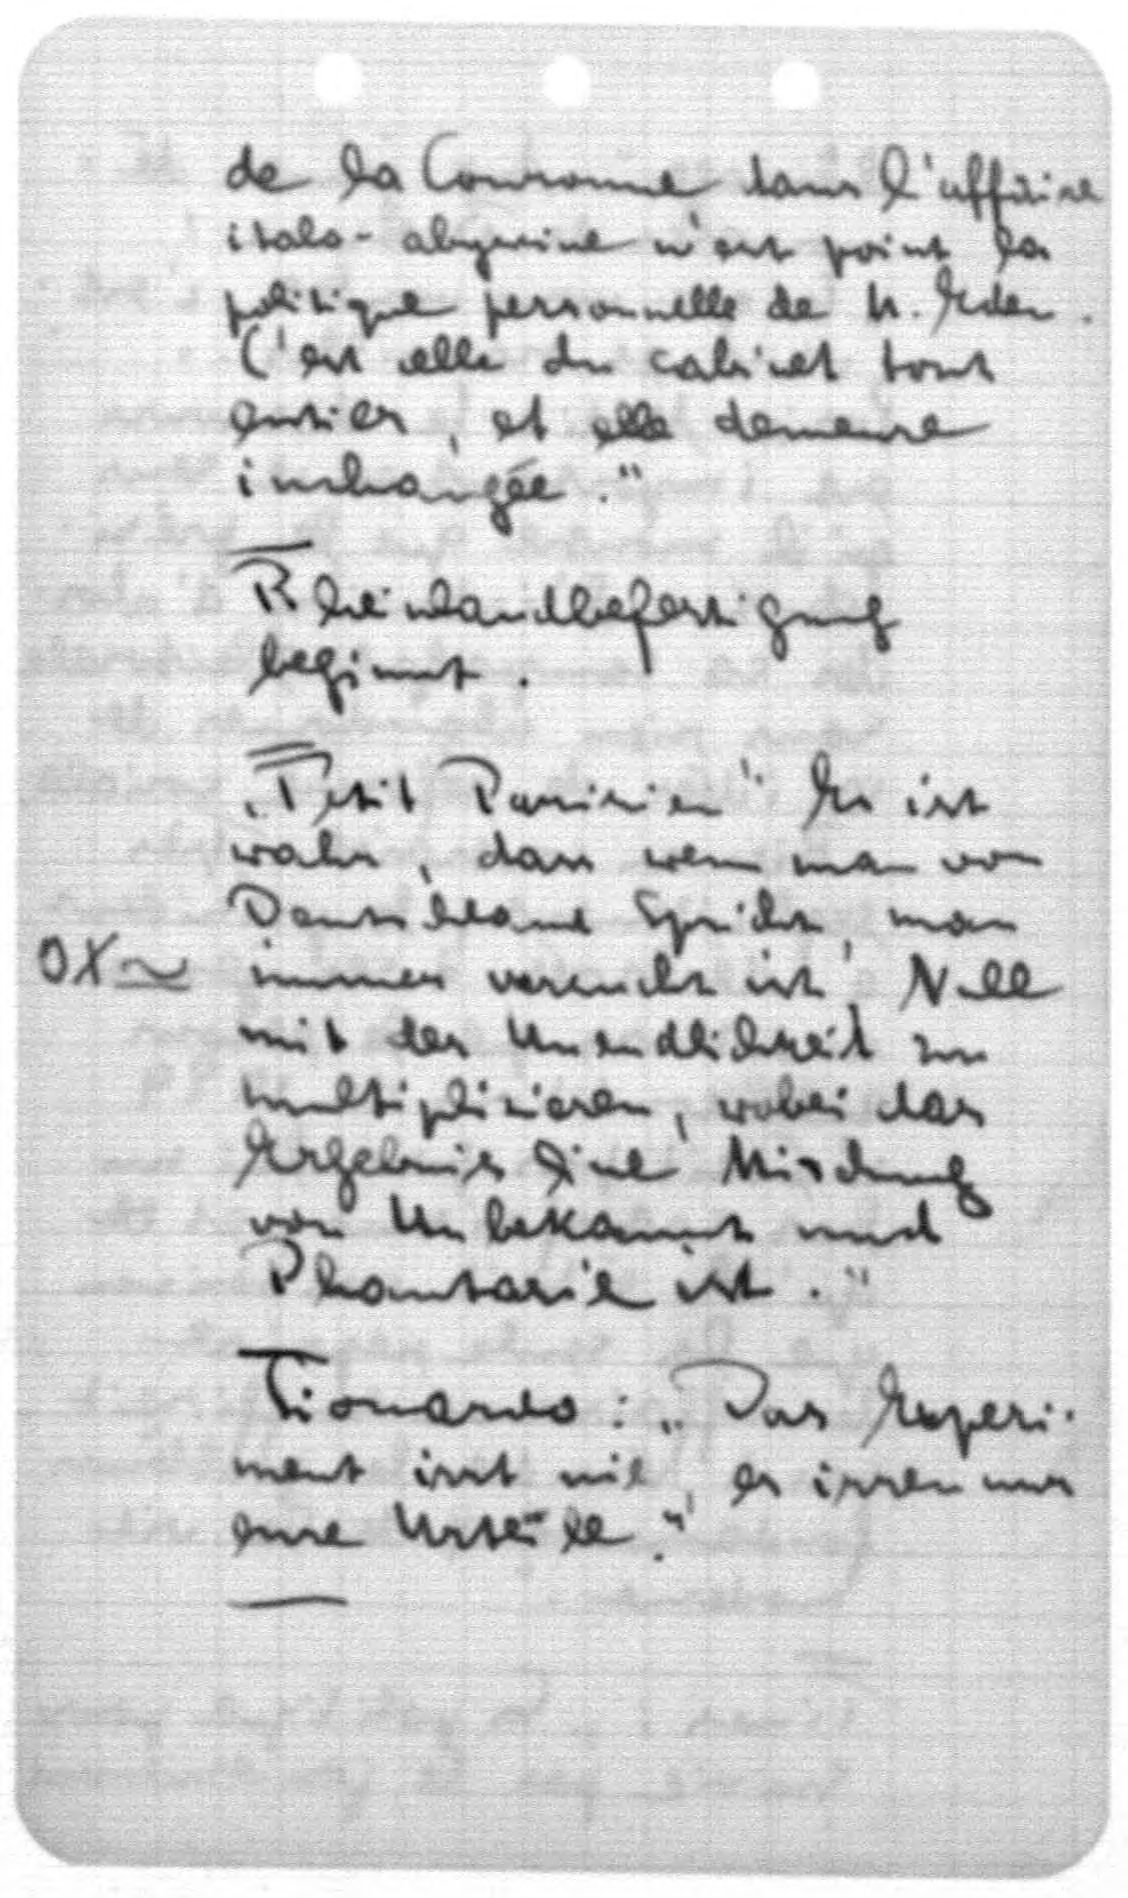 de la Couronne dans l'affaire
italo-abyssine n'est point la
politique personnelle de M. Eden.
C'est celle du cabinet tout
entier, et elle demeure
inchangée."
Rheinlandbefestigung
beginnt.
„Petit Parisien" Es ist
wahr, dass wenn man von
Deutschland spricht, man
0X∼ immer versucht ist, Null
mit der Unendlichkeit zu
multiplizieren, wobei das
Ergebnis eine Mischung
von Unbekannt und
Phantasie ist."
Lionardo: „Das Experi-
ment irrt nie, es irren nur
eure Urteile."